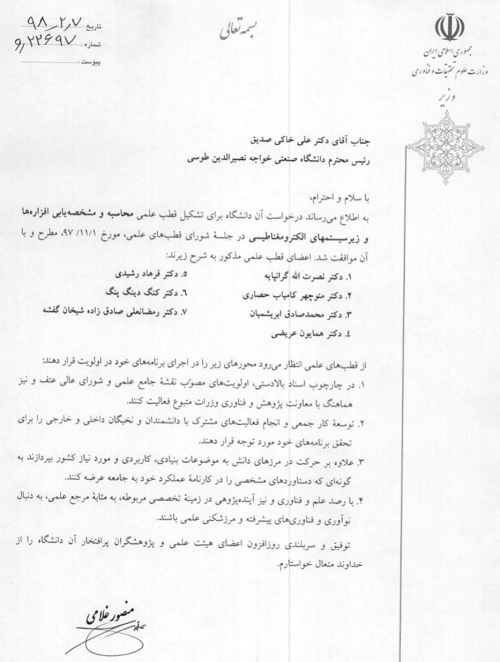 بسمه تعالی
جمهوری اسلامی ایران
وزارت علوم تحقیقات و فناوری
وزیر
تاریخ: ۹۸/۲/۷
شماره: ۹/۲۲۶۹۷
پیوست:
جناب آقای دکتر علی خاکی صدیق
رئیس محترم دانشگاه صنعتی خواجه نصیرالدین طوسی
با سلام و احترام،
به اطلاع می‌رساند درخواست آن دانشگاه برای تشکیل قطب علمی محاسبه و مشخصه‌یابی افزاره‌ها
و زیرسیستمهای الکترومغناطیسی در جلسة شورای قطب‌های علمی، مورخ ۹۷/۱۱/۱، مطرح و با
آن موافقت شد. اعضای قطب علمی مذکور به شرح زیرند:
۱. دکتر نصرت الله گرانپایه
۵. دکتر فرهاد رشیدی
۲. دکتر منوچهر کامیاب حصاری
۶. دکتر کنگ دینگ پنگ
۳. دکتر محمدصادق ابریشمیان
۷. دکتر رمضانعلی صادق زاده شیخان گفشه
۴. دکتر همایون عریضی
از قطب‌های علمی انتظار می‌رود محورهای زیر را در اجرای برنامه‌های خود در اولویت قرار دهند:
۱. در چارچوب اسناد بالادستی، اولویت‌های مصوّب نقشة جامع علمی و شورای عالی عتف و نیز
هماهنگ با معاونت پژوهش و فناوری وزرات متبوع فعالیت کنند.
۲. توسعة کار جمعی و انجام فعالیت‌های مشترک با دانشمندان و نخبگان داخلی و خارجی را برای
تحقق برنامه‌های خود مورد توجه قرار دهند.
۳. علاوه بر حرکت در مرزهای دانش به موضوعات بنیادی، کاربردی و مورد نیاز کشور بپردازند به
گونه‌ای که دستاوردهای مشخصی را در کارنامة عملکرد خود به جامعه عرضه کنند.
۴. با رصد علم و فناوری و نیز آینده‌پژوهی در زمینة تخصصی مربوطه، به مثابة مرجع علمی، به دنبال
نوآوری و فناوری‌های پیشرفته و مرزشکنی علمی باشند.
توفیق و سربلندی روزافزون اعضای هیئت علمی و پژوهشگران پرافتخار آن دانشگاه را از
خداوند متعال خواستارم.
منصور غلامی